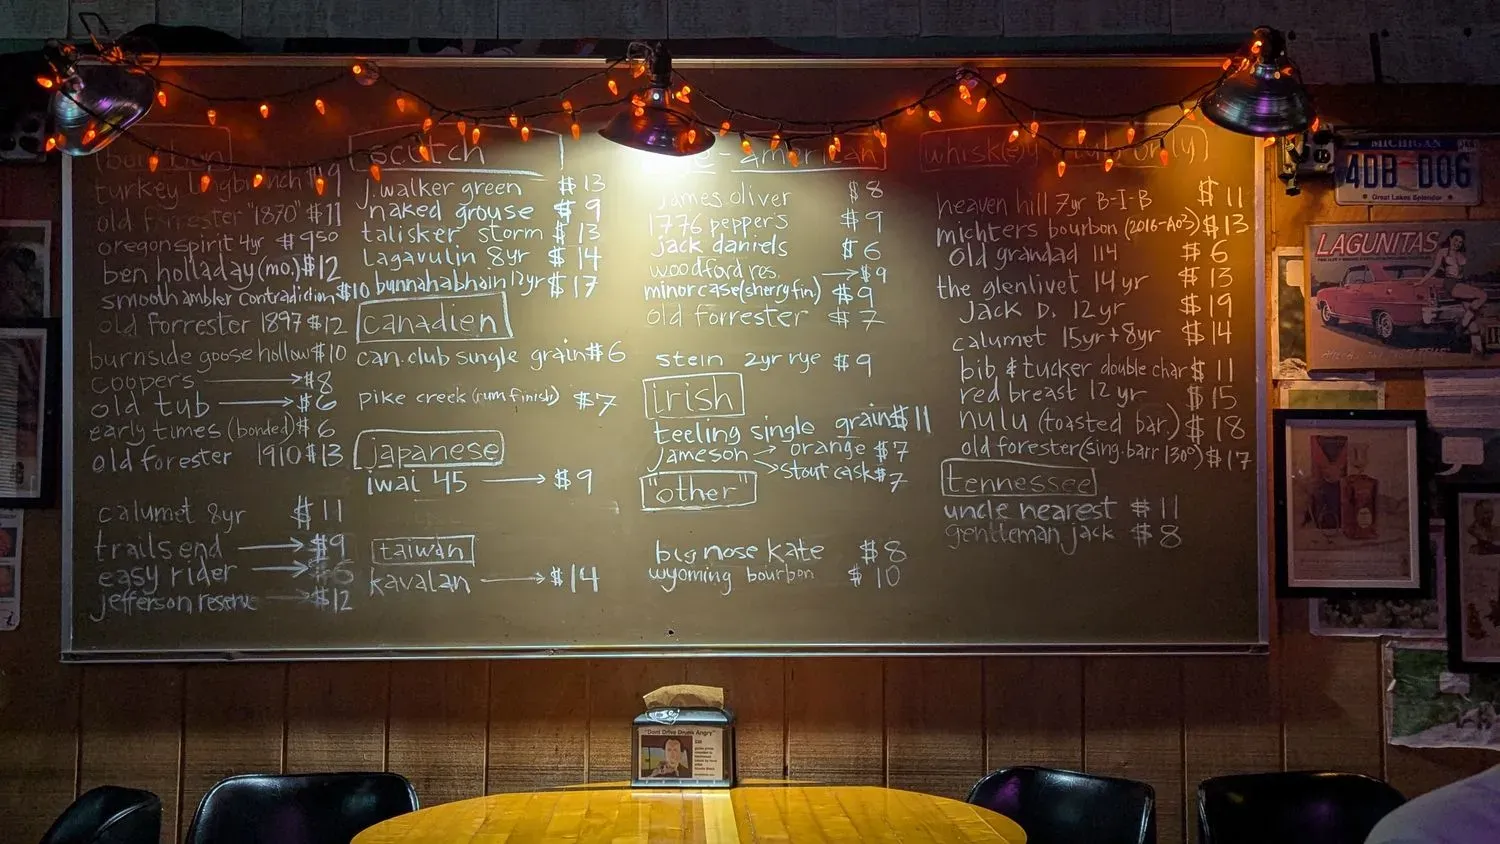 bourbon
turkey longbranch $9
old forrester "1870" $11
oregon spirit 4yr $9 50
ben holladay (mo.) $12
smooth ambler contradiction $10
old forrester 1897 $12
burnside goose hollow $10
coopers → $8
old tub → $6
early times (bonded) $6
old forester 1910 $13
calumet 8yr $11
trails end → $9
easy rider → $6
jefferson reserve → $12
scotch
j. walker green $13
naked grouse $9
talisker storm $13
lagavulin 8yr $14
bunnahabhain 12yr $17
canadien
can. club single grain $6
pike creek (rum finish) $7
japanese
iwai 45 → $9
taiwan
kavalan → $14
american
james oliver $8
1776 pepper's $9
jack daniels $6
woodford res. → $9
minorcase (sherry fin) $9
old forrester $7
stein 2yr rye $9
irish
teeling single grain $11
jameson → orange $7
→ stout cask $7
"other"
big nose kate $8
wyoming bourbon $10
whisk(e)y
heaven hill 7yr B-I-B $11
michters bourbon (2016-A03) $13
old grandad 114 $6
the glenlivet 14yr $13
Jack D. 12yr $19
calumet 15yr + 8yr $14
bib & tucker double char $11
red breast 12yr $15
nulu (toasted bar.) $18
old forester (sing. barr 130°) $17
tennessee
uncle nearest $11
gentleman jack $8
MICHIGAN
4DB D06
Great Lakes Splendor
LAGUNITAS
"Dont Drive Drunk Angry"